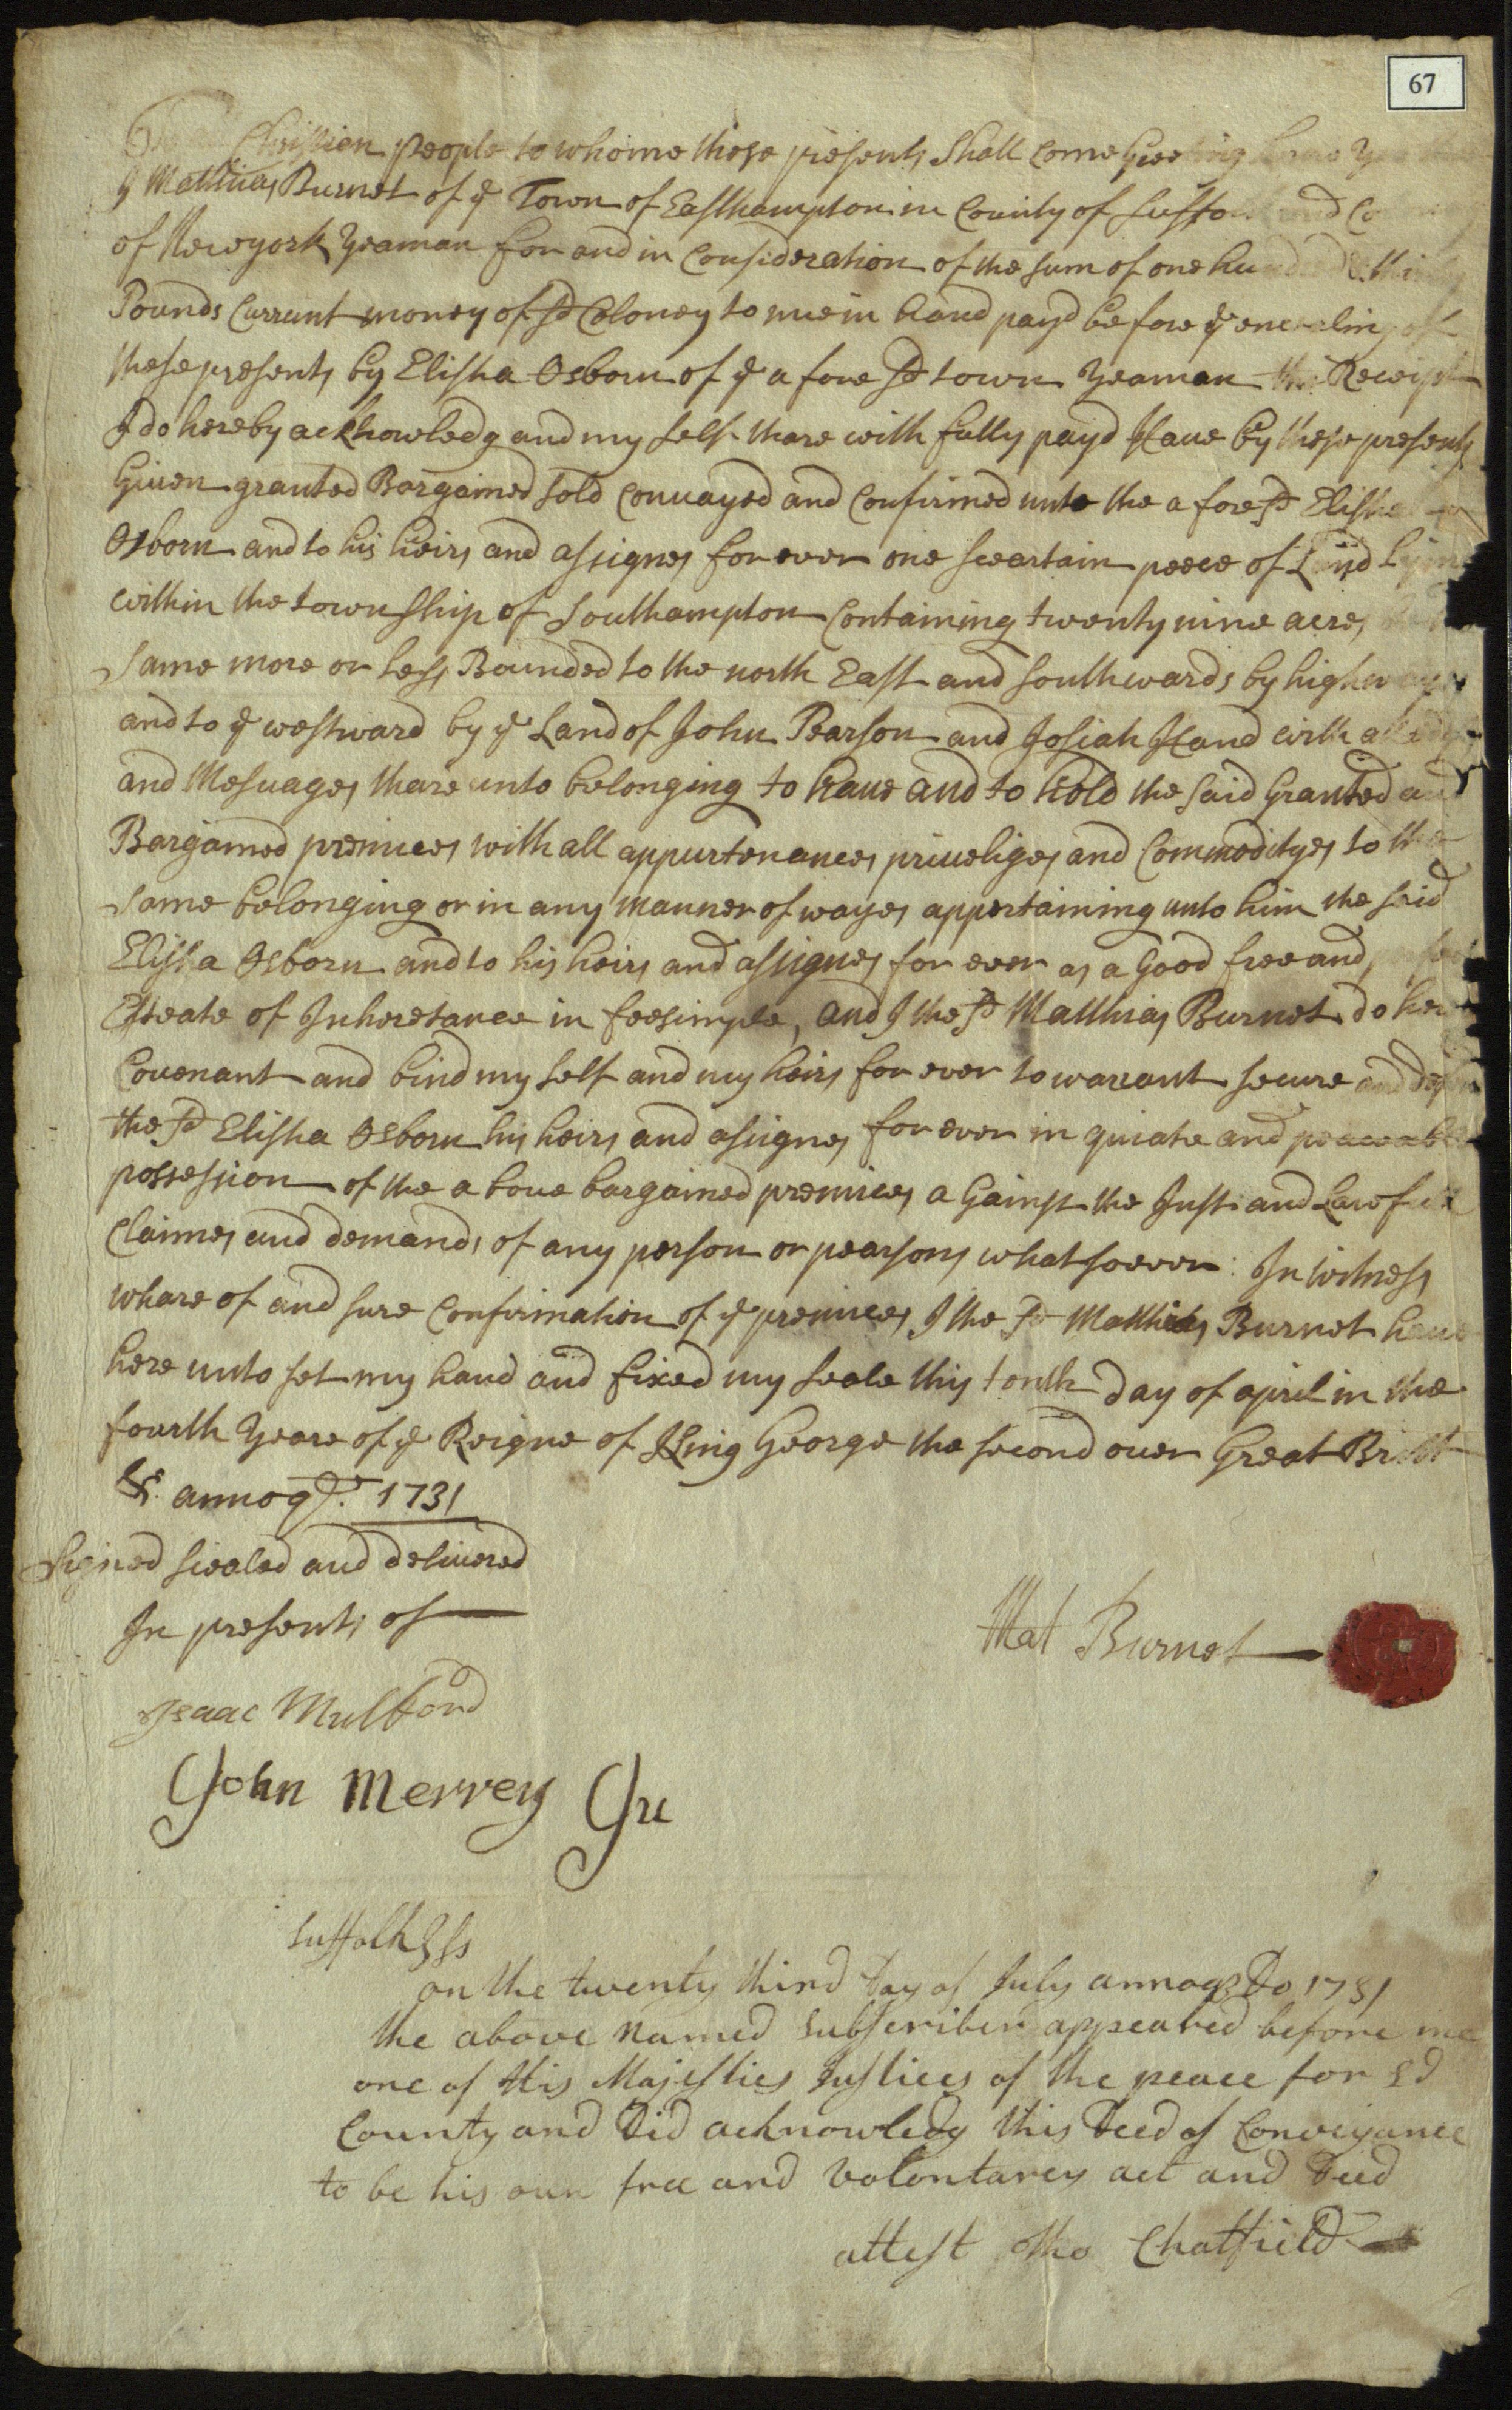 67
Christian people to whome these presents Shall Come Greeting
I Matthias Burnet of ye Town of Easthampton in County of Suffolk and
of Newyork Yeaman for and in Consideration of the sum of one hundred & thirty
Pounds Currant money of sd Coloney to mee in hand payd before ye ensealing of
these presents by Elisha Osborn of ye a fore sd town Yeaman the Receipt
I do hereby acknowledg and my self thare with fully payd Haue by these presents
Giuen granted Bargained sold conuayed and Confirmed unto the a fore sd Elisha
Osborn and to his heirs and assignes for ever one sceartain peece of Land Lying
within the township of Southampton Containing twenty nine acres
same more or Less Bounded to the north East and southwards by highways
and to ye westward by ye Land of John Pearson and Josiah Hand with all
and Mesuages thare unto belonging to haue and to hold the said Granted and
Bargained premices with all appurtenances priueliges and Commoditys to the
same belonging or in any manner of wayes appertaining unto him the said
Elisha Osborn and to his heirs and assignes for ever as a Good free and
Esteate of Inheretance in feesimple, and I the sd Matthias Burnet do here
Couenant and bind my self and my heirs for ever to warrant secure and defend
the sd Elisha Osborn his heirs and assignes for ever in quiate and peaceable
possession of the a boue bargained premices a Gainst the Just and Lawfull
Claimes and demands of any person or pearsons whatsoever: In witness
whare of and sure Confirmation of ye premices I the sd Matthias Burnet haue
here unto set my hand and fixed my seale this tenth day of april in the
fourth Yeare of ye Reigne of King George the second ouer Great Britt
&c. annoq D. 1731
Signed sealed and deliuered
In presents of
Mat Burnet
Isaac Mulford
John Merrey Ju
Suffolk Ss
on the twenty third Day of July annoq Do 1731
the above Named Subscriber appeared before me
one of His Majesties Justices of the peace for sd
County and Did acknowledg this Deed of Conveyance
to be his own free and Volontarey act and Deed
attest Tho Chatfield